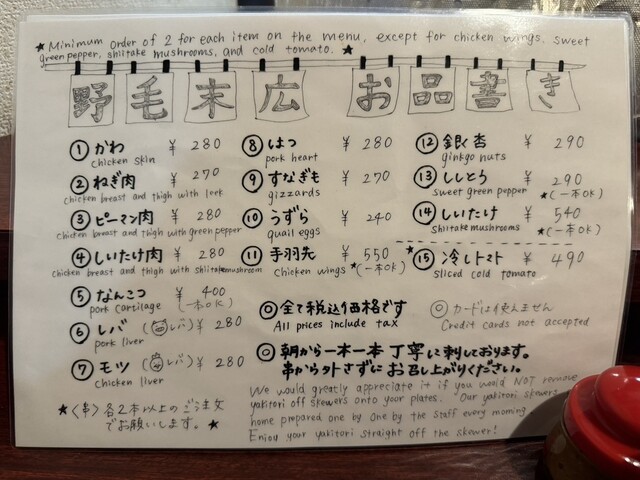 ★Minimum order of 2 for each item on the menu, except for chicken wings, sweet
green pepper, shiitake mushrooms, and cold tomato. ★
野毛末広 お品書き
① かわ ¥ 280
chicken skin
② ねぎ肉 ¥ 270
chicken breast and thigh with leek
③ ピーマン肉 ¥ 280
chicken breast and thigh with green pepper
④ しいたけ肉 ¥ 280
chicken breast and thigh with shiitake mushroom
⑤ なんこつ ¥ 400
pork cartilage (一本OK)
⑥ レバ (レバ) ¥ 280
pork liver
⑦ モツ (レバ) ¥ 280
chicken liver
★〈串〉各2本以上のご注文
でお願いします。★
⑧ はつ ¥ 280
pork heart
⑨ すなぎも ¥ 270
gizzards
⑩ うずら ¥ 240
quail eggs
⑪ 手羽先 ¥ 550
chicken wings ★(一本OK)
⑫ 銀杏 ¥ 290
ginkgo nuts
⑬ ししとう ¥ 290
sweet green pepper ★(一本OK)
⑭ しいたけ ¥ 540
shiitake mushrooms ★(一本OK)
★⑮ 冷しトマト ¥ 490
sliced cold tomato
◎ 全て税込価格です
All prices include tax
◎ カードは使えません
Credit cards not accepted
◎ 朝から一本一本丁寧に刺しております。
串から外さずにお召し上がりください。
We would greatly appreciate it if you would NOT remove
yakitori off skewers onto your plates. Our yakitori skewers
home prepared one by One by the staff every morning
Enjoy your yakitori straight off the skewer!